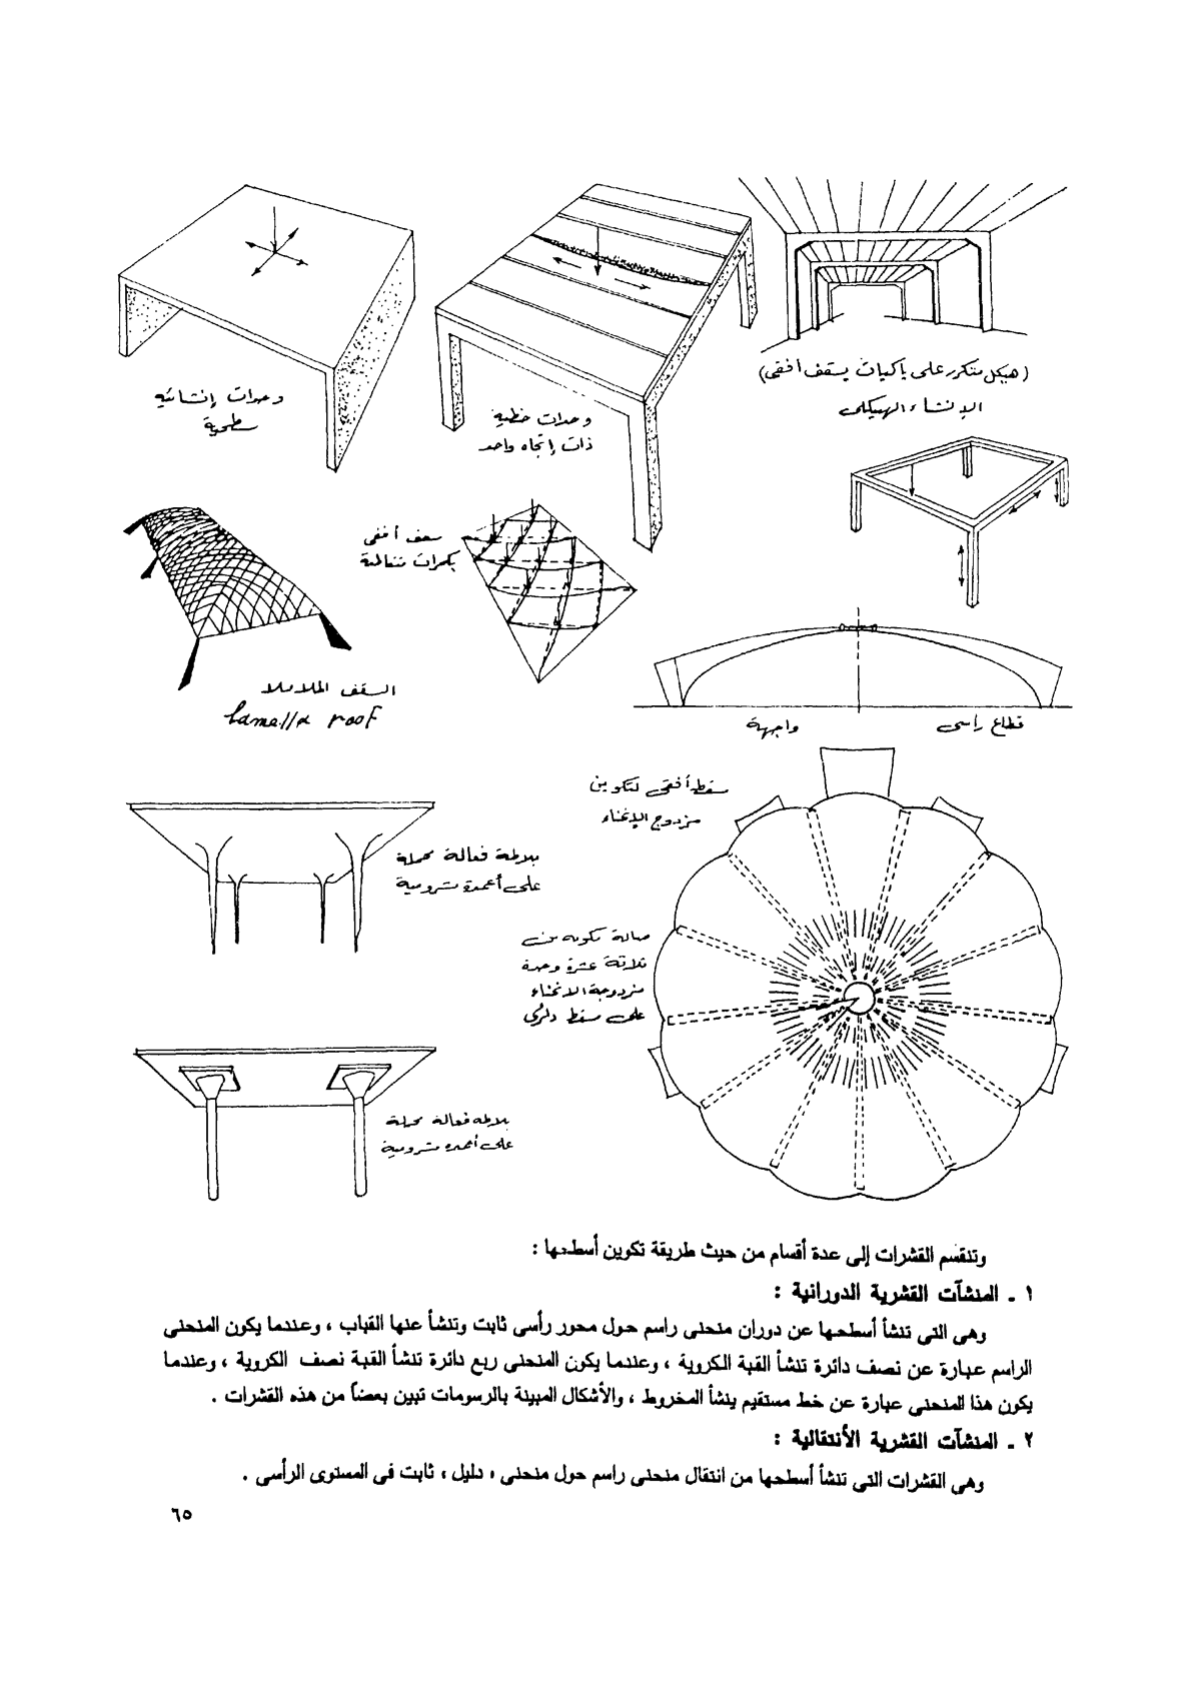 (هيكل متكرر على باكيات بسقف أفقى)
الإنشاء الهيكلى
وحدات خطية
ذات إتجاه واحد
وحدات إنشائية
سطحية
سقف أفقى
بكمرات متقاطعة
السقف الملاميلا
lamella roof
قطاع رأسى
واجهة
مسقط أفقى لتكوين
مزدوج الإنحناء
بلاطة فعالة محملة
على أعمدة مشرومية
صالة مكونه من
ثلاثة عشرة وحدة
مزدوجة الانحناء
على مسقط دائرى
بلاطه فعالة محملة
على أعمدة مشرومية
وتنقسم القشرات إلى عدة أقسام من حيث طريقة تكوين أسطحها :
١ ـ المنشآت القشرية الدورانية :
وهى التى تنشأ أسطحها عن دوران منحنى راسم حول محور رأسى ثابت وتنشأ عنها القباب ، وعندما يكون المنحنى
الراسم عبارة عن نصف دائرة تنشأ القبة الكروية ، وعندما يكون المنحنى ربع دائرة تنشأ القبة نصف الكروية ، وعندما
يكون هذا المنحنى عبارة عن خط مستقيم ينشأ المخروط ، والأشكال المبينة بالرسومات تبين بعضاً من هذه القشرات .
٢ ـ المنشآت القشرية الأنتقالية :
وهى القشرات التى تنشأ أسطحها من انتقال منحنى راسم حول منحنى ، دليل ، ثابت فى المستوى الرأسى .
٦٥